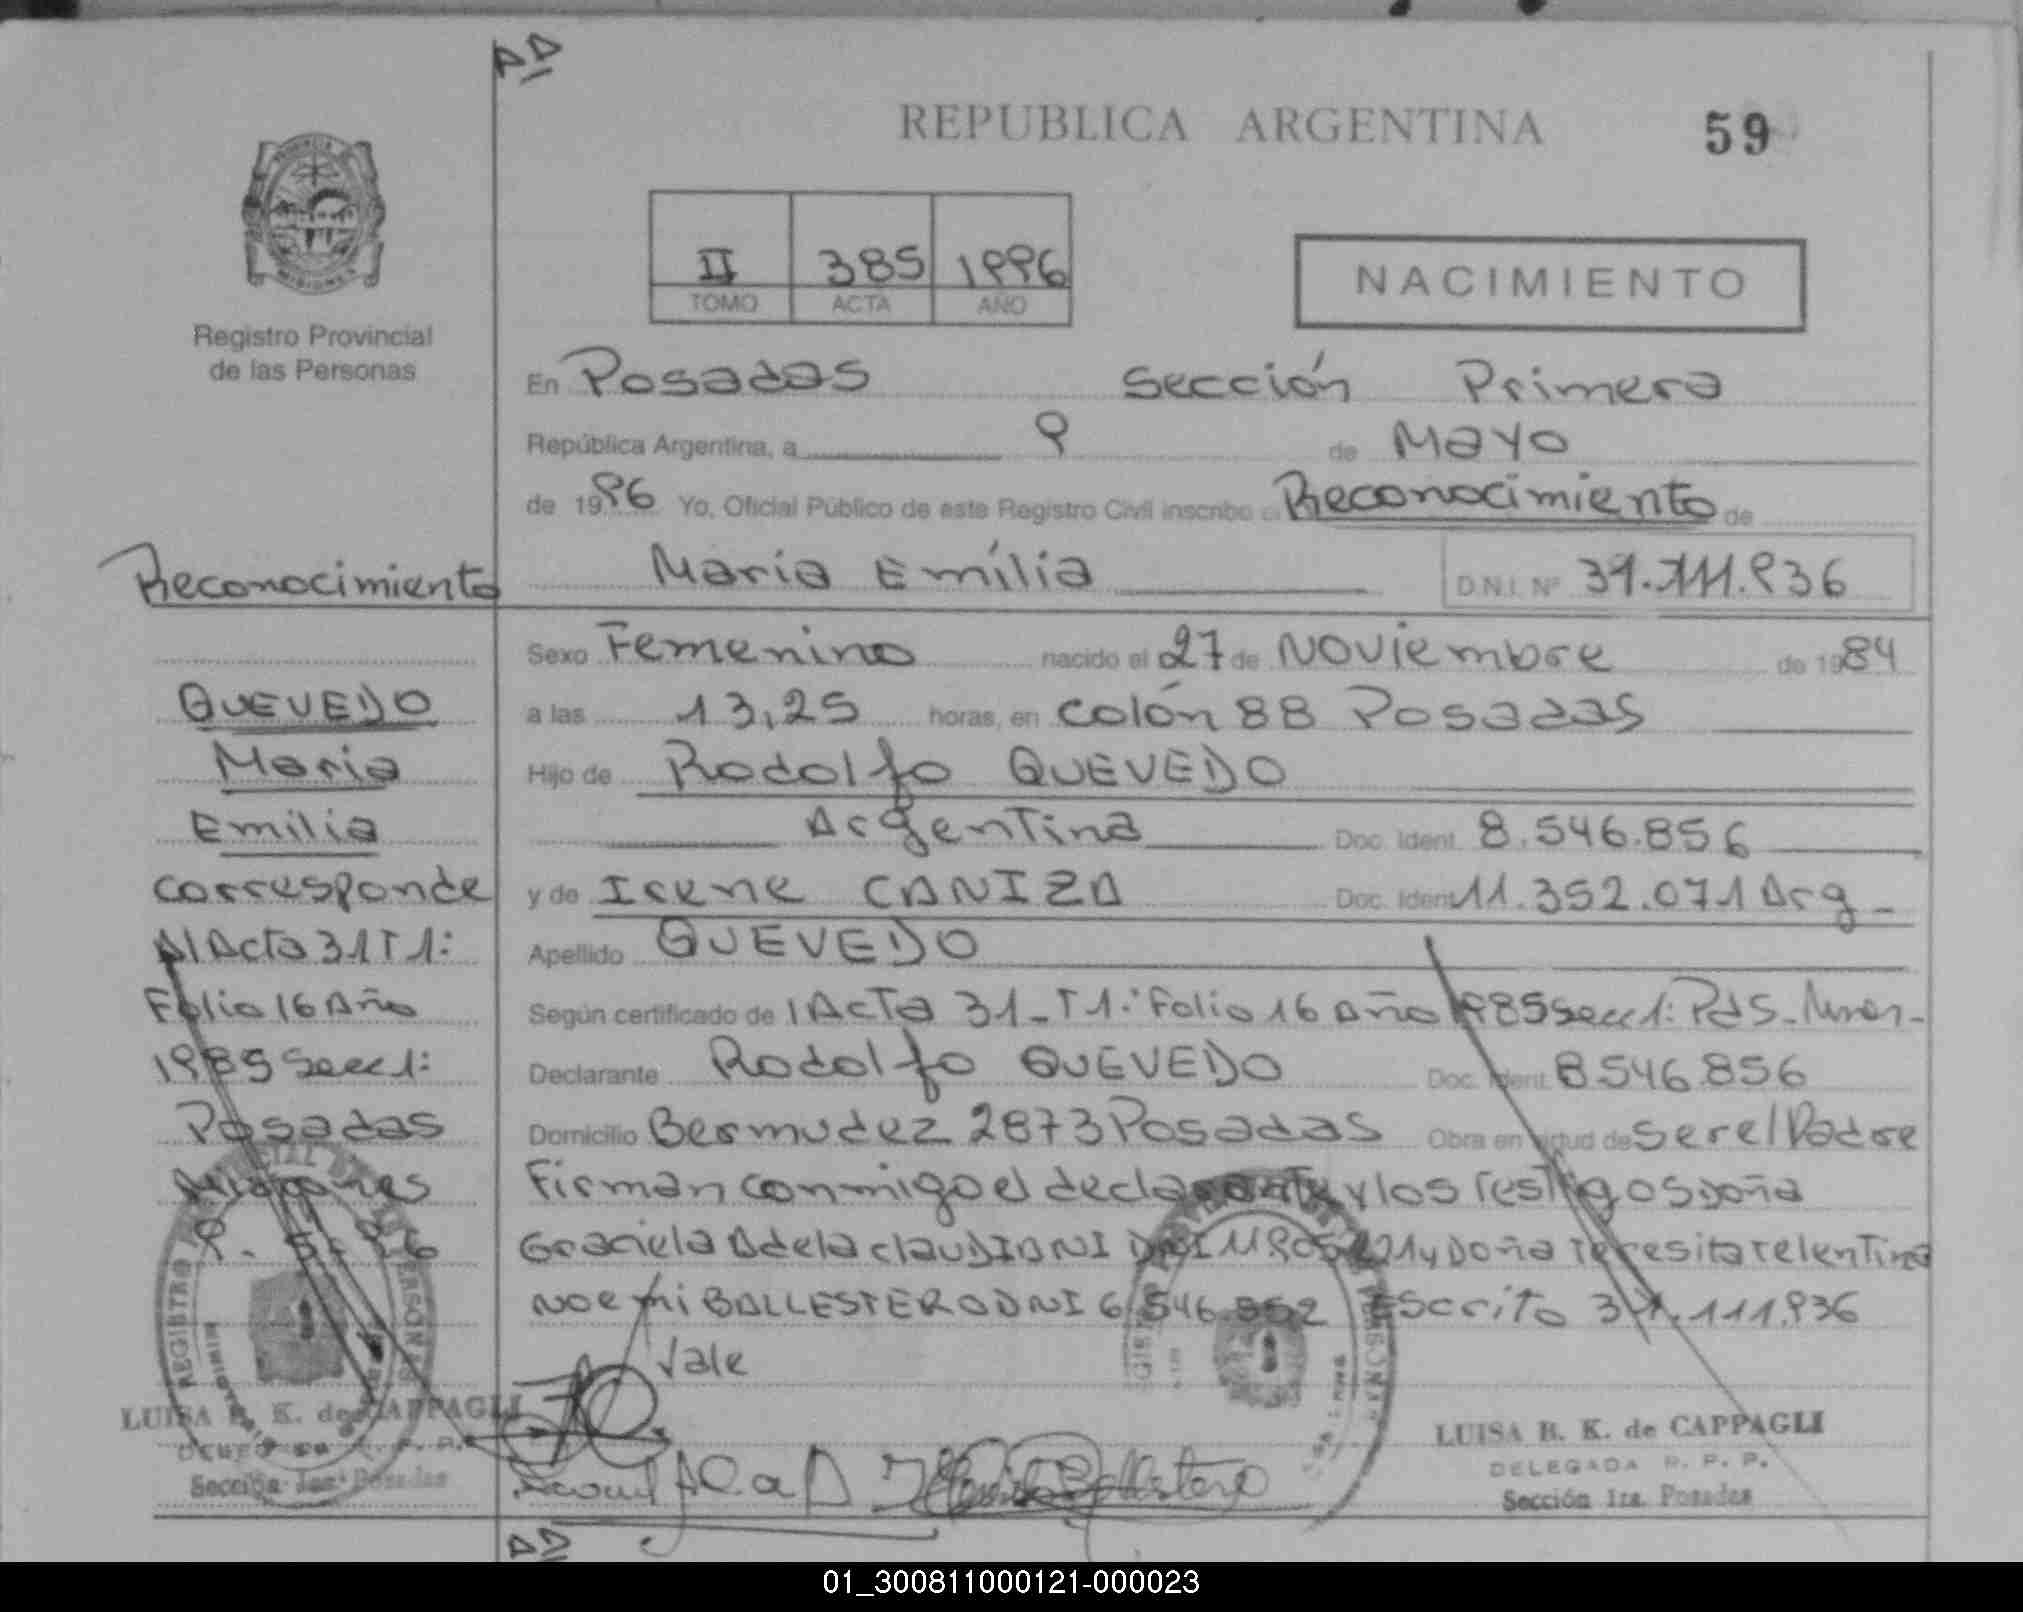 REPUBLICA ARGENTINA
59
PROVINCIA
MISIONES
Registro Provincial
de las Personas
II 385 1996
TOMO ACTA AÑO
NACIMIENTO
En Posadas Sección Primera
República Argentina, a 9 de Mayo
de 1996 Yo, Oficial Público de este Registro Civil inscribo el Reconocimiento de
Maria Emilia D.N.I. Nº 31.111.936
Sexo Femenino nacido el 27 de Noviembre de 1984
a las 13,25 horas, en Colón 88 Posadas
Hijo de Rodolfo QUEVEDO
Argentina Doc. Ident. 8.546.856
y de Irene CANIZA Doc. Ident 11.352.071 Arg_
Apellido QUEVEDO
Según certificado de 1 Acta 31_T1: Folio 16 Año 1985 Secc 1: Pds_
Declarante Rodolfo QUEVEDO Doc. Ident. 8546.856
Domicilio Bermudez 2873 Posadas Obra en virtud de ser el Padre
Firman conmigo el declarante y los testigos Doña
Graciela Adela CLAUDIANI DNI y Doña Teresita
Noemi BALLESTERO DNI 6.546.852 Escrito 31.111.936
Vale
Reconocimiento
QUEVEDO
Maria
Emilia
corresponde
Al Acta 31 T1:
Folio 16 Año
1985 Secc 1:
Posadas
Misiones
9. 5. 96
LUISA B. K. de CAPPAGLI
Sección 1ra. Posadas
LUISA B. K. de CAPPAGLI
DELEGADA R. P. P.
Sección 1ra. Posadas
01_300811000121-000023